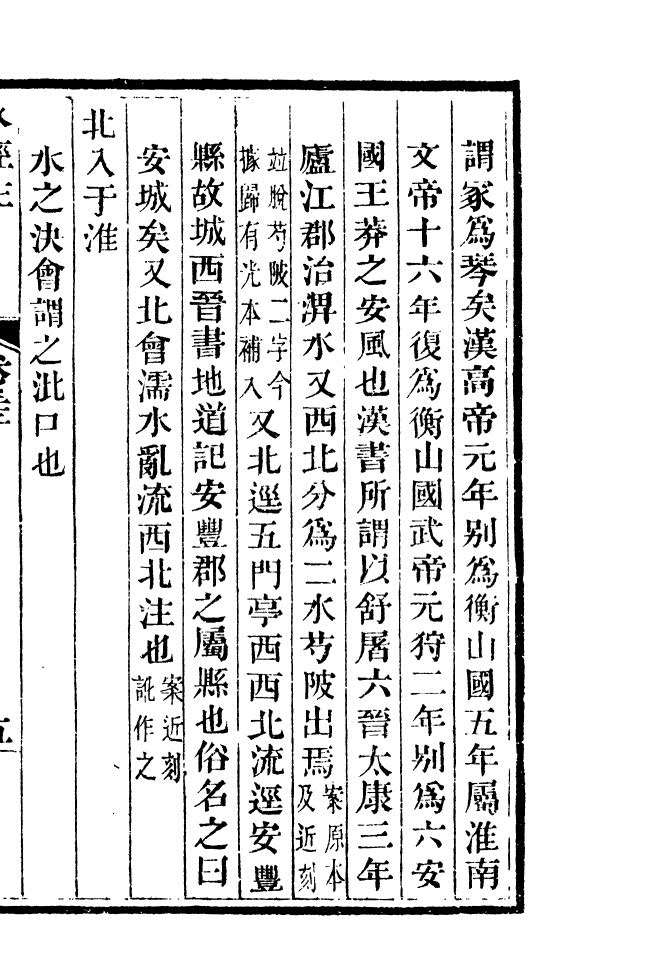 謂冢爲琴矣漢高帝元年别爲衡山國五年屬淮南
文帝十六年復爲衡山國武帝元狩二年别爲六安
國王莽之安風也漢書所謂以舒屠六晉太康三年
廬江郡治淠水又西北分爲二水芍陂出焉案原本及近刻
竝脫芍陂二字今據歸有光本補入又北逕五門亭西西北流逕安豐
縣故城西晉書地道記安豐郡之屬縣也俗名之曰
安城矣又北會濡水亂流西北注也案近刻訛作之
北入于淮
水之決會謂之沘口也
五